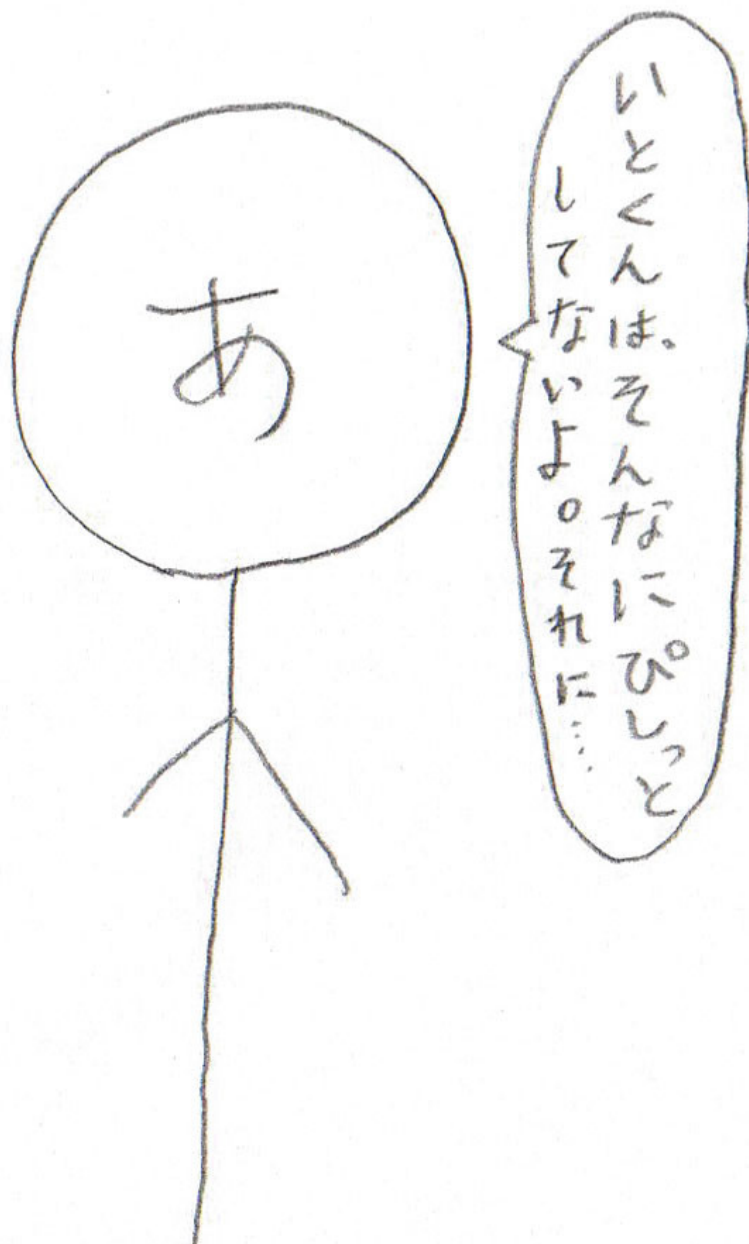 いとくんは、そんなにぴしっと
してないよ。それに……
あ